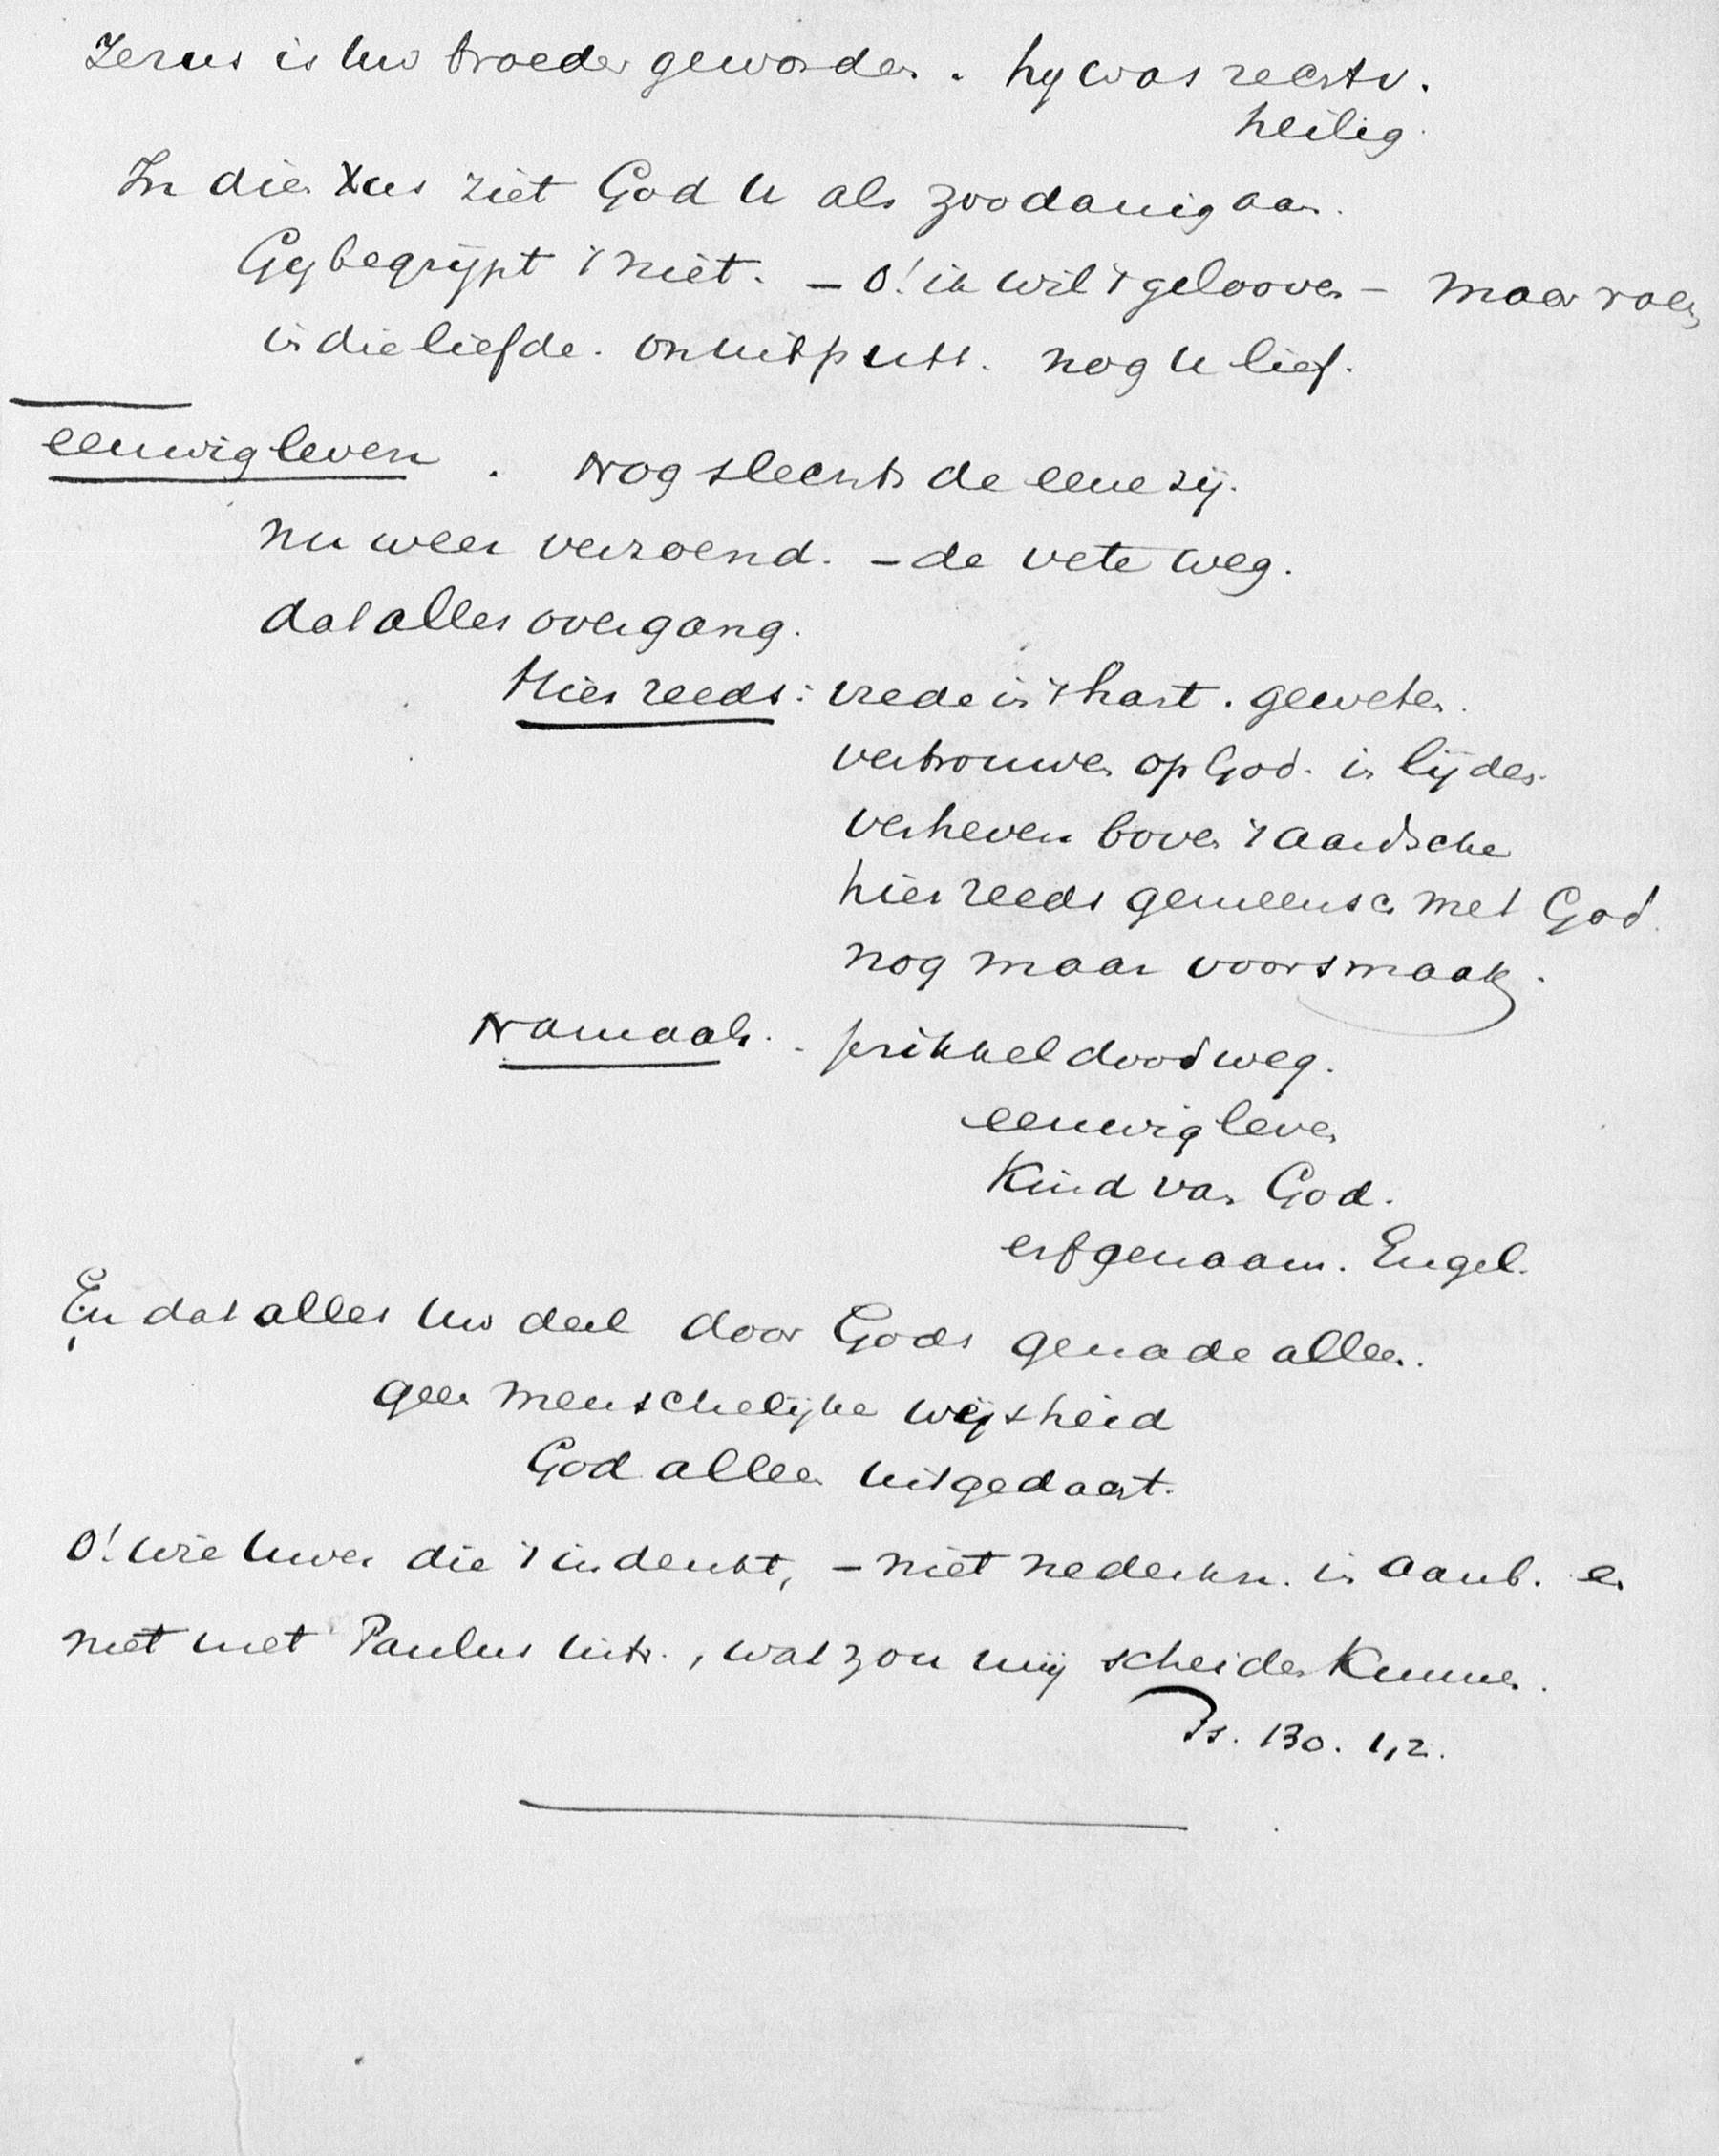 Jezus is Uw broeder geworden. hy was rechtv.
heilig.
In dien Xus ziet God U als zoodanig aan.
Gy begrijpt 't niet. — O! ik wil 't gelooven — maar
is die liefde. onuitputt. nog U lief.
eeuwig leven. Nog slechts de eene zij.
nu weer verzoend. — de vete weg.
dat alles overgang.
Hier reeds: vrede in 't hart. geweten.
vertrouwen op God. in lijden.
verheven boven 't aardsche
hier reeds gemeensch met God.
nog maar voorsmaak.
Namaals. prikkel dood weg.
eeuwig leven
Kind van God.
erfgenaam. Engel.
En dat alles Uw deel door Gods genade alleen.
geen menschelijke wijsheid
God alleen uitgedacht.
O! wie Uwer die 't indenkt, — niet nederkn. in aanb. en
niet met Paulus uitr., wat zou mij scheiden Kunnen.
Ps. 130. 1,2.